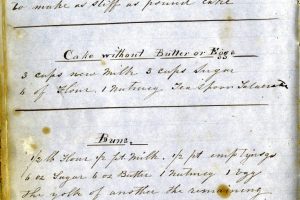 to make as stiff as pound cake
Cake without Butter or Eggs
3 cups new Milk 3 cups Sugar
6 of Flour 1 Nutmeg Tea Spoon
Buns
1/2 lb Flour 1/2 pt Milk. 1/2 pt emptyings
6 oz Sugar 6 oz Butter 1 Nutmeg 1 egg
the yolk of another the remaining